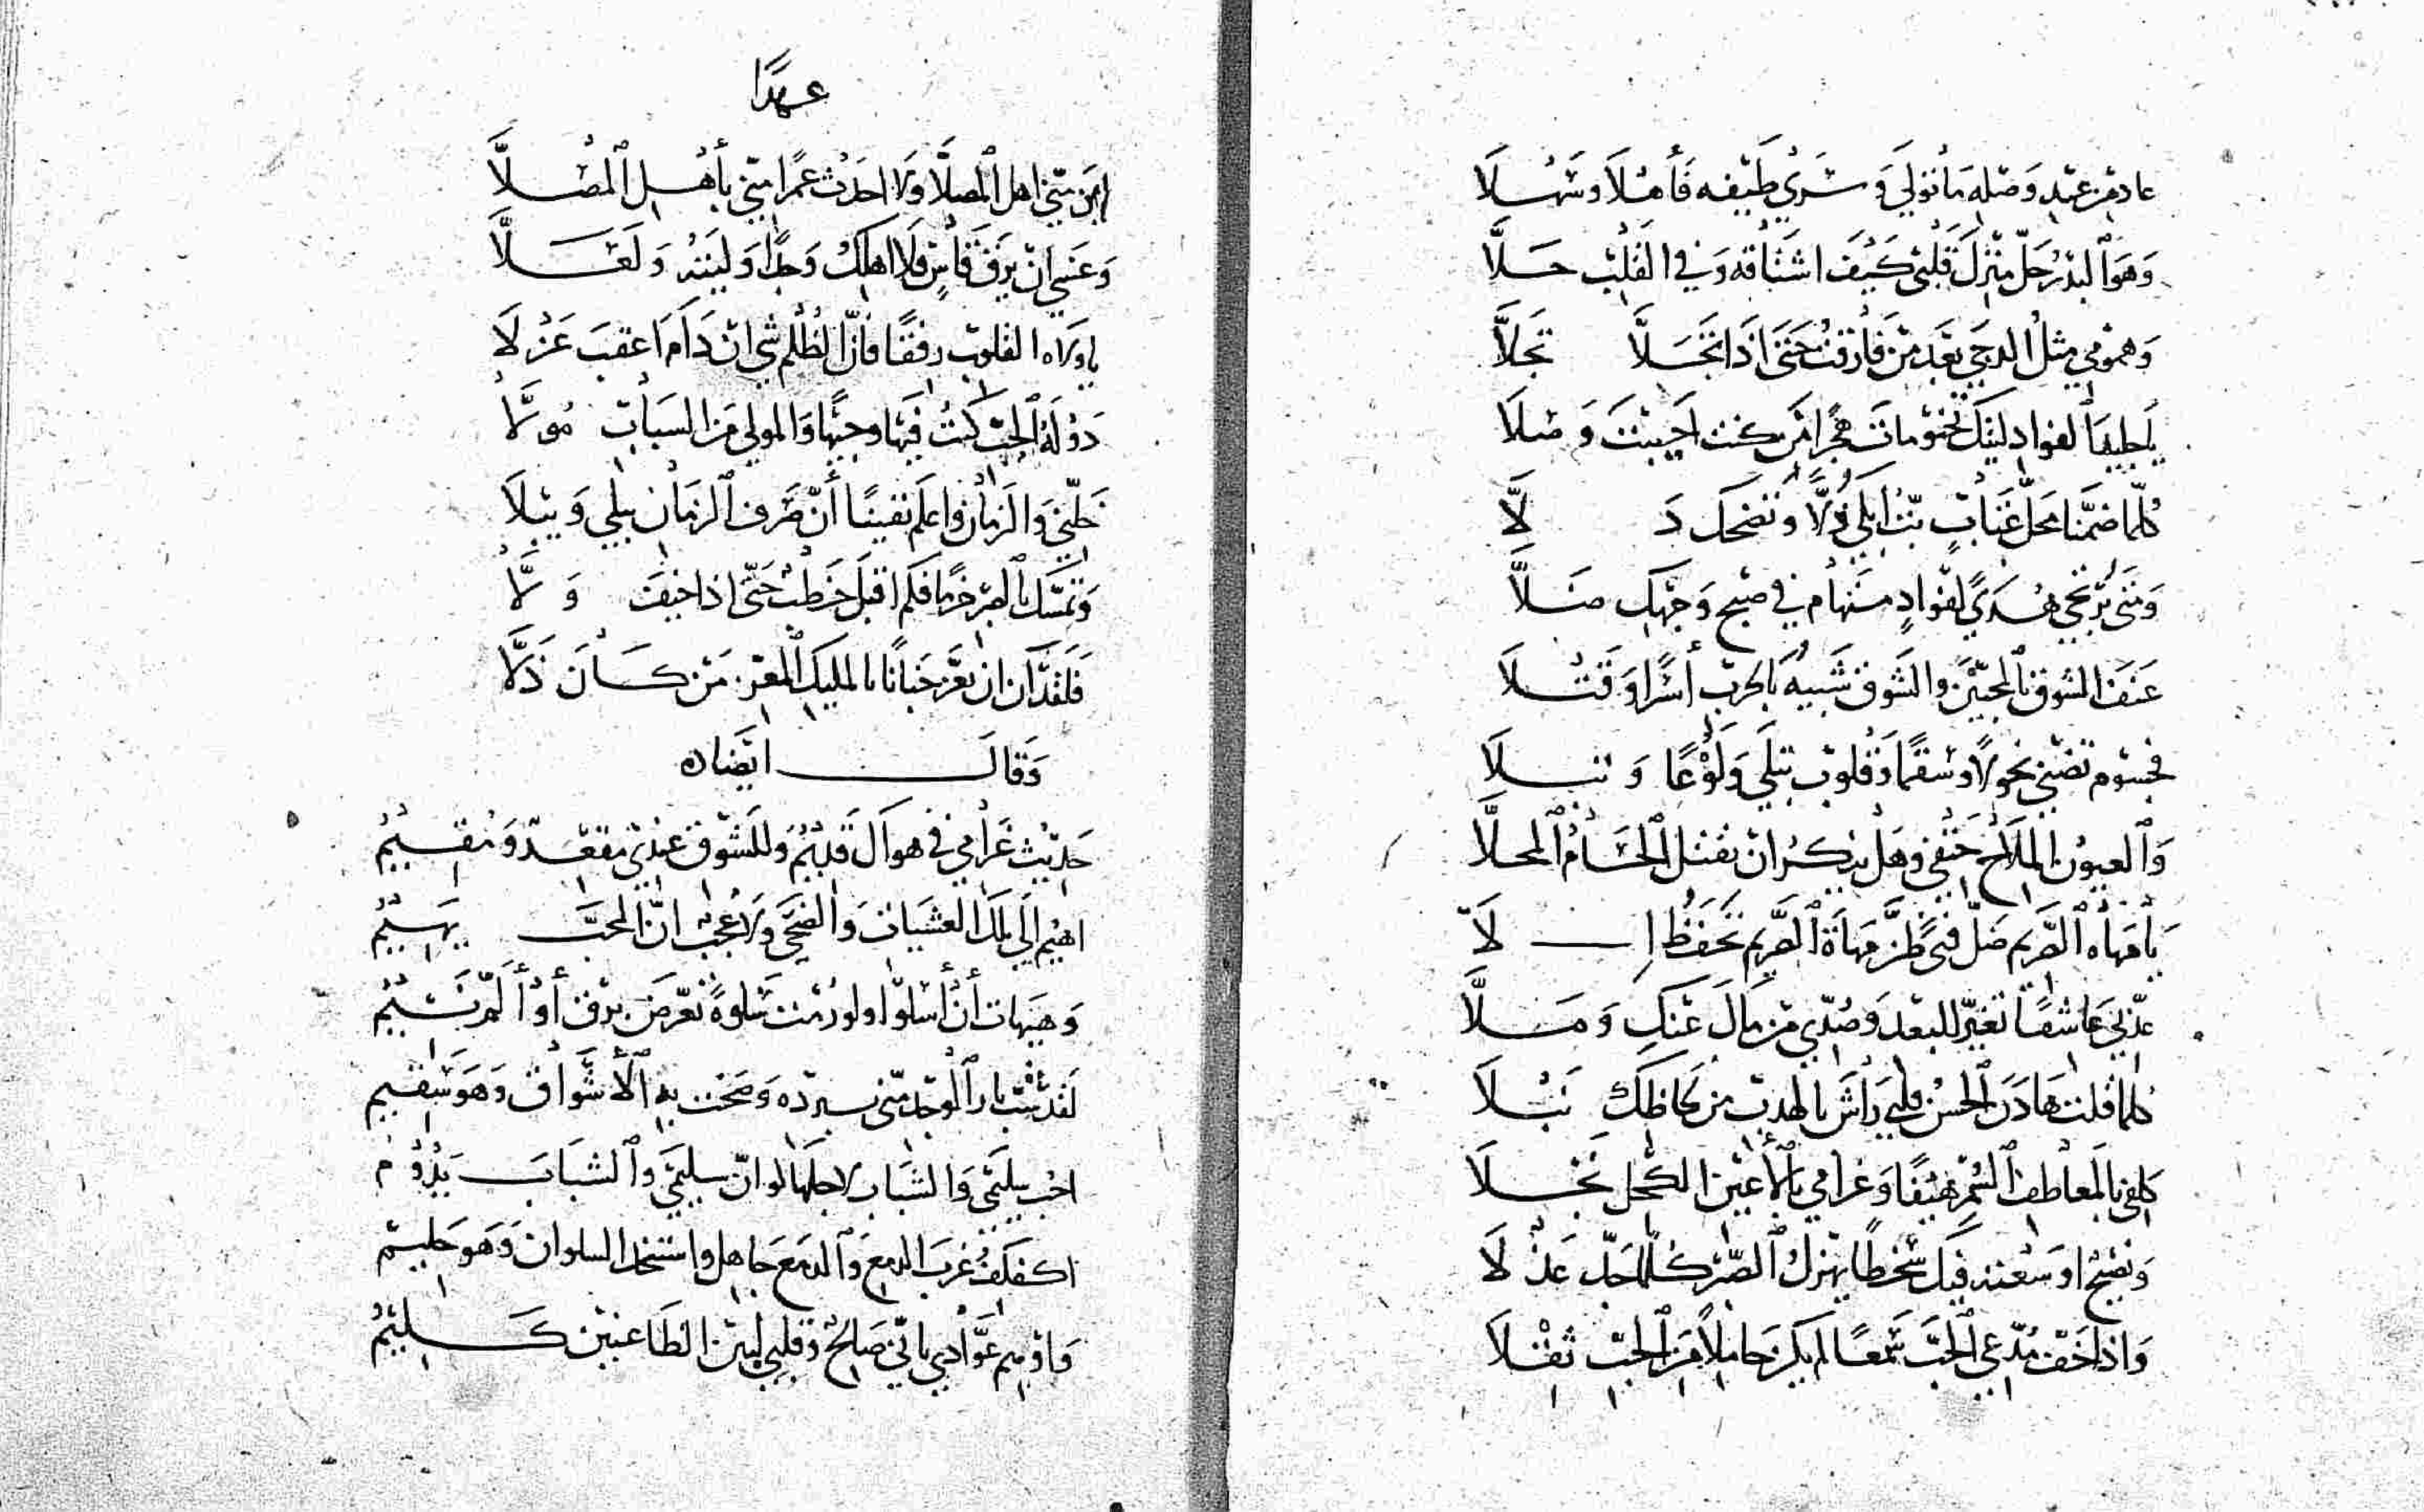 عاد من عهد وصله ما تولي وسرى طيفه فأهلا وسهلا
وهو البدر حل منزل قلبي كيف اشتاقه وفي القلب حلا
وهمومي مثل الدجي بعد من فارقت حتى اذا تجلا تجلا
كلما ضمنا محل عتاب بت ابكي ذلا وتضحك دلا
ومتى يرتجي هدى لفؤاد مستهام في صبح وجهك ضلا
عنف الشوق بالمحبين والشوق شبيه بالحرب أسرا وقتلا
فجسوم تضنى نحولا وسقما وقلوب تبلى ولوعا وتبلا
والعيون الملاح حتفي وهل ينكر ان يقتل الحسام المحلا
يا مهاة الصريم ضل فتى ظن مهاة الصريم تحفظ إلا
عذبي عاشقا تغير للبعد وصدي من مال عنك وملا
كلما قلت هادن الحسن قلبي راش بالهدب من لحاظك نبلا
كلفي بالمعاطف السمر هيفا وغرامي بالأعين الكحل نجلا
واذا خف مدعي الحب سمعا لم يكن حاملا من الحب ثقلا
عهدا
اين مني اهل المصلا ولا احدث عمرا مني بأهل المصلا
وعسى ان يرق قاس فلا اهلك وجدا وليته ولعلا
يا ولاه القلوب رفقا فان الظلم شي ان دام اعقب عزلا
دولة الحب كنت فيها وجيها والمولي من السبات مولا
خلني والزمان واعلم يقينا أن صرف الزمان يبلي ويبلا
وتمسك بالصبر حزما فكم اقبل خطب حتى اذا خيف ولا
فلقد آن ان يعز جنابا بالمليك المعز من كان ذلا
وقال ايضا
حديث غرامي في هواك قديم وللشوق عندي مقعد ومقيم
اهيم الى تلك العشيات والضحى ولا عجب ان المحب يهيم
وهيهات أن أسلوا ولو رمت سلوة تعرض برق أو ألم نسيم
لقد شب نار الوجد مني ببرده وصحت به الأشواق وهو سقيم
احب سليمى والشباب لاجلها لو ان سليمى والشباب يدوم
اكفكف غرب الدمع والدمع جاهل واستنجد السلوان وهو حليم
واوهم عوادي باني صالح وقلبي لبين الظاعنين كليم